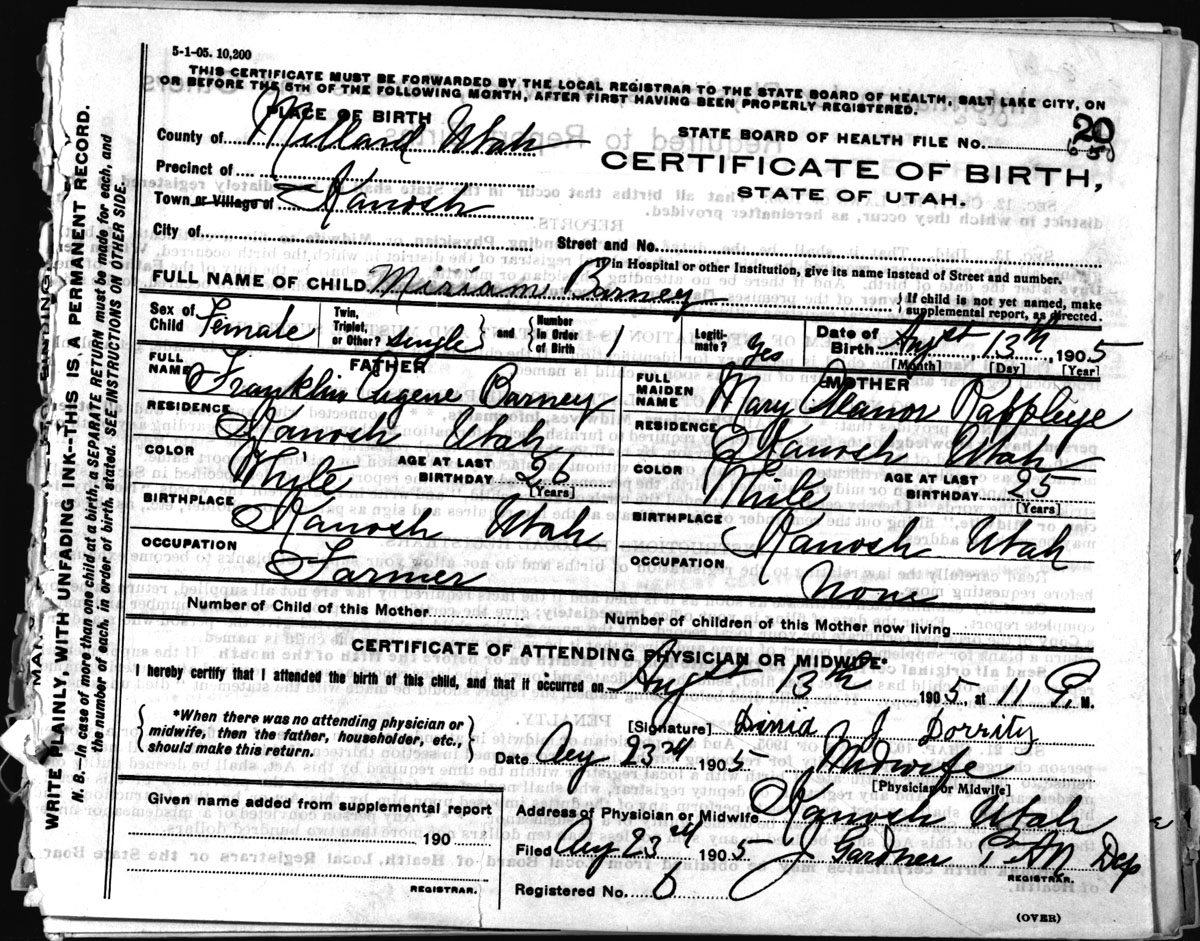 5-1-05. 10,200
THIS CERTIFICATE MUST BE FORWARDED BY THE LOCAL REGISTRAR TO THE STATE BOARD OF HEALTH, SALT LAKE CITY, ON
OR BEFORE THE 5TH OF THE FOLLOWING MONTH, AFTER FIRST HAVING BEEN PROPERLY REGISTERED.
PLACE OF BIRTH
STATE BOARD OF HEALTH FILE No. 20
County of Millard Utah
CERTIFICATE OF BIRTH,
STATE OF UTAH.
Precinct of
Town or Village of Kanosh
City of
Street and No.
If in Hospital or other Institution, give its name instead of Street and number.
FULL NAME OF CHILD Miriam Barney
If child is not yet named, make supplemental report, as directed.
Sex of Child Female Twin, Triplet, or Other? single and Number In Order of Birth 1 Legiti-mate? yes Date of Birth Augst 13th 1905
[Month] [Day] [Year]
FATHER
FULL NAME Franklin Eugene Barney
RESIDENCE Kanosh Utah
COLOR White AGE AT LAST BIRTHDAY
[Years]
BIRTHPLACE Kanosh Utah
OCCUPATION Farmer
MOTHER
FULL MAIDEN NAME Mary Eleanor Rappleye
RESIDENCE Kanosh Utah
COLOR White AGE AT LAST BIRTHDAY 25
[Years]
BIRTHPLACE Kanosh Utah
OCCUPATION None
Number of Child of this Mother
Number of children of this Mother now living
CERTIFICATE OF ATTENDING PHYSICIAN OR MIDWIFE*
I hereby certify that I attended the birth of this child, and that it occurred on Augst 13th 1905, at 11 P. M.
*When there was no attending physician or
midwife, then the father, householder, etc.,
should make this return.
[Signature] J Dorrity
Date Aug 23rd 1905 Midwife
[Physician or Midwife]
Given name added from supplemental report
190
REGISTRAR.
Address of Physician or Midwife Kanosh Utah
Filed Aug 23rd 1905 J Gardner Dep
REGISTRAR.
Registered No. 6
(OVER)
WRITE PLAINLY, WITH UNFADING INK--THIS IS A PERMANENT RECORD.
N. B.--In case of more than one child at a birth, a SEPARATE RETURN must be made for each, and
the number of each, in order of birth, stated. SEE INSTRUCTIONS ON OTHER SIDE.